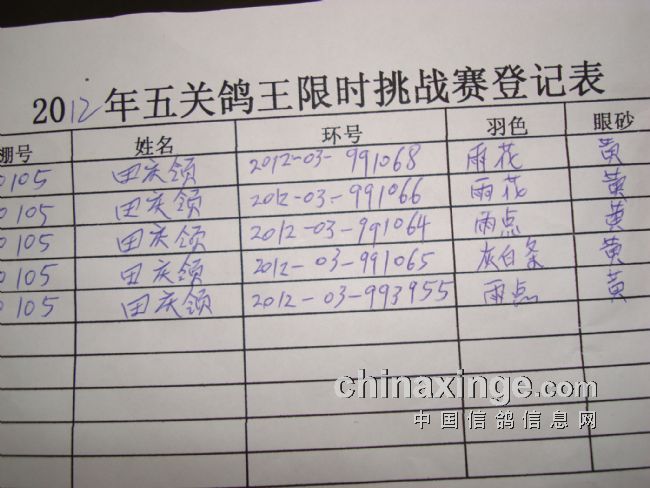 2012年五关鸽王限时挑战赛登记表
棚号 姓名 环号 羽色 眼砂
0105 田庆领 2012-03-991068 雨花 黄
0105 田庆领 2012-03-991066 雨花 黄
0105 田庆领 2012-03-991064 雨点 黄
0105 田庆领 2012-03-991065 灰白条 黄
0105 田庆领 2012-03-993955 雨点 黄
chinaxinge.com
中国信鸽信息网